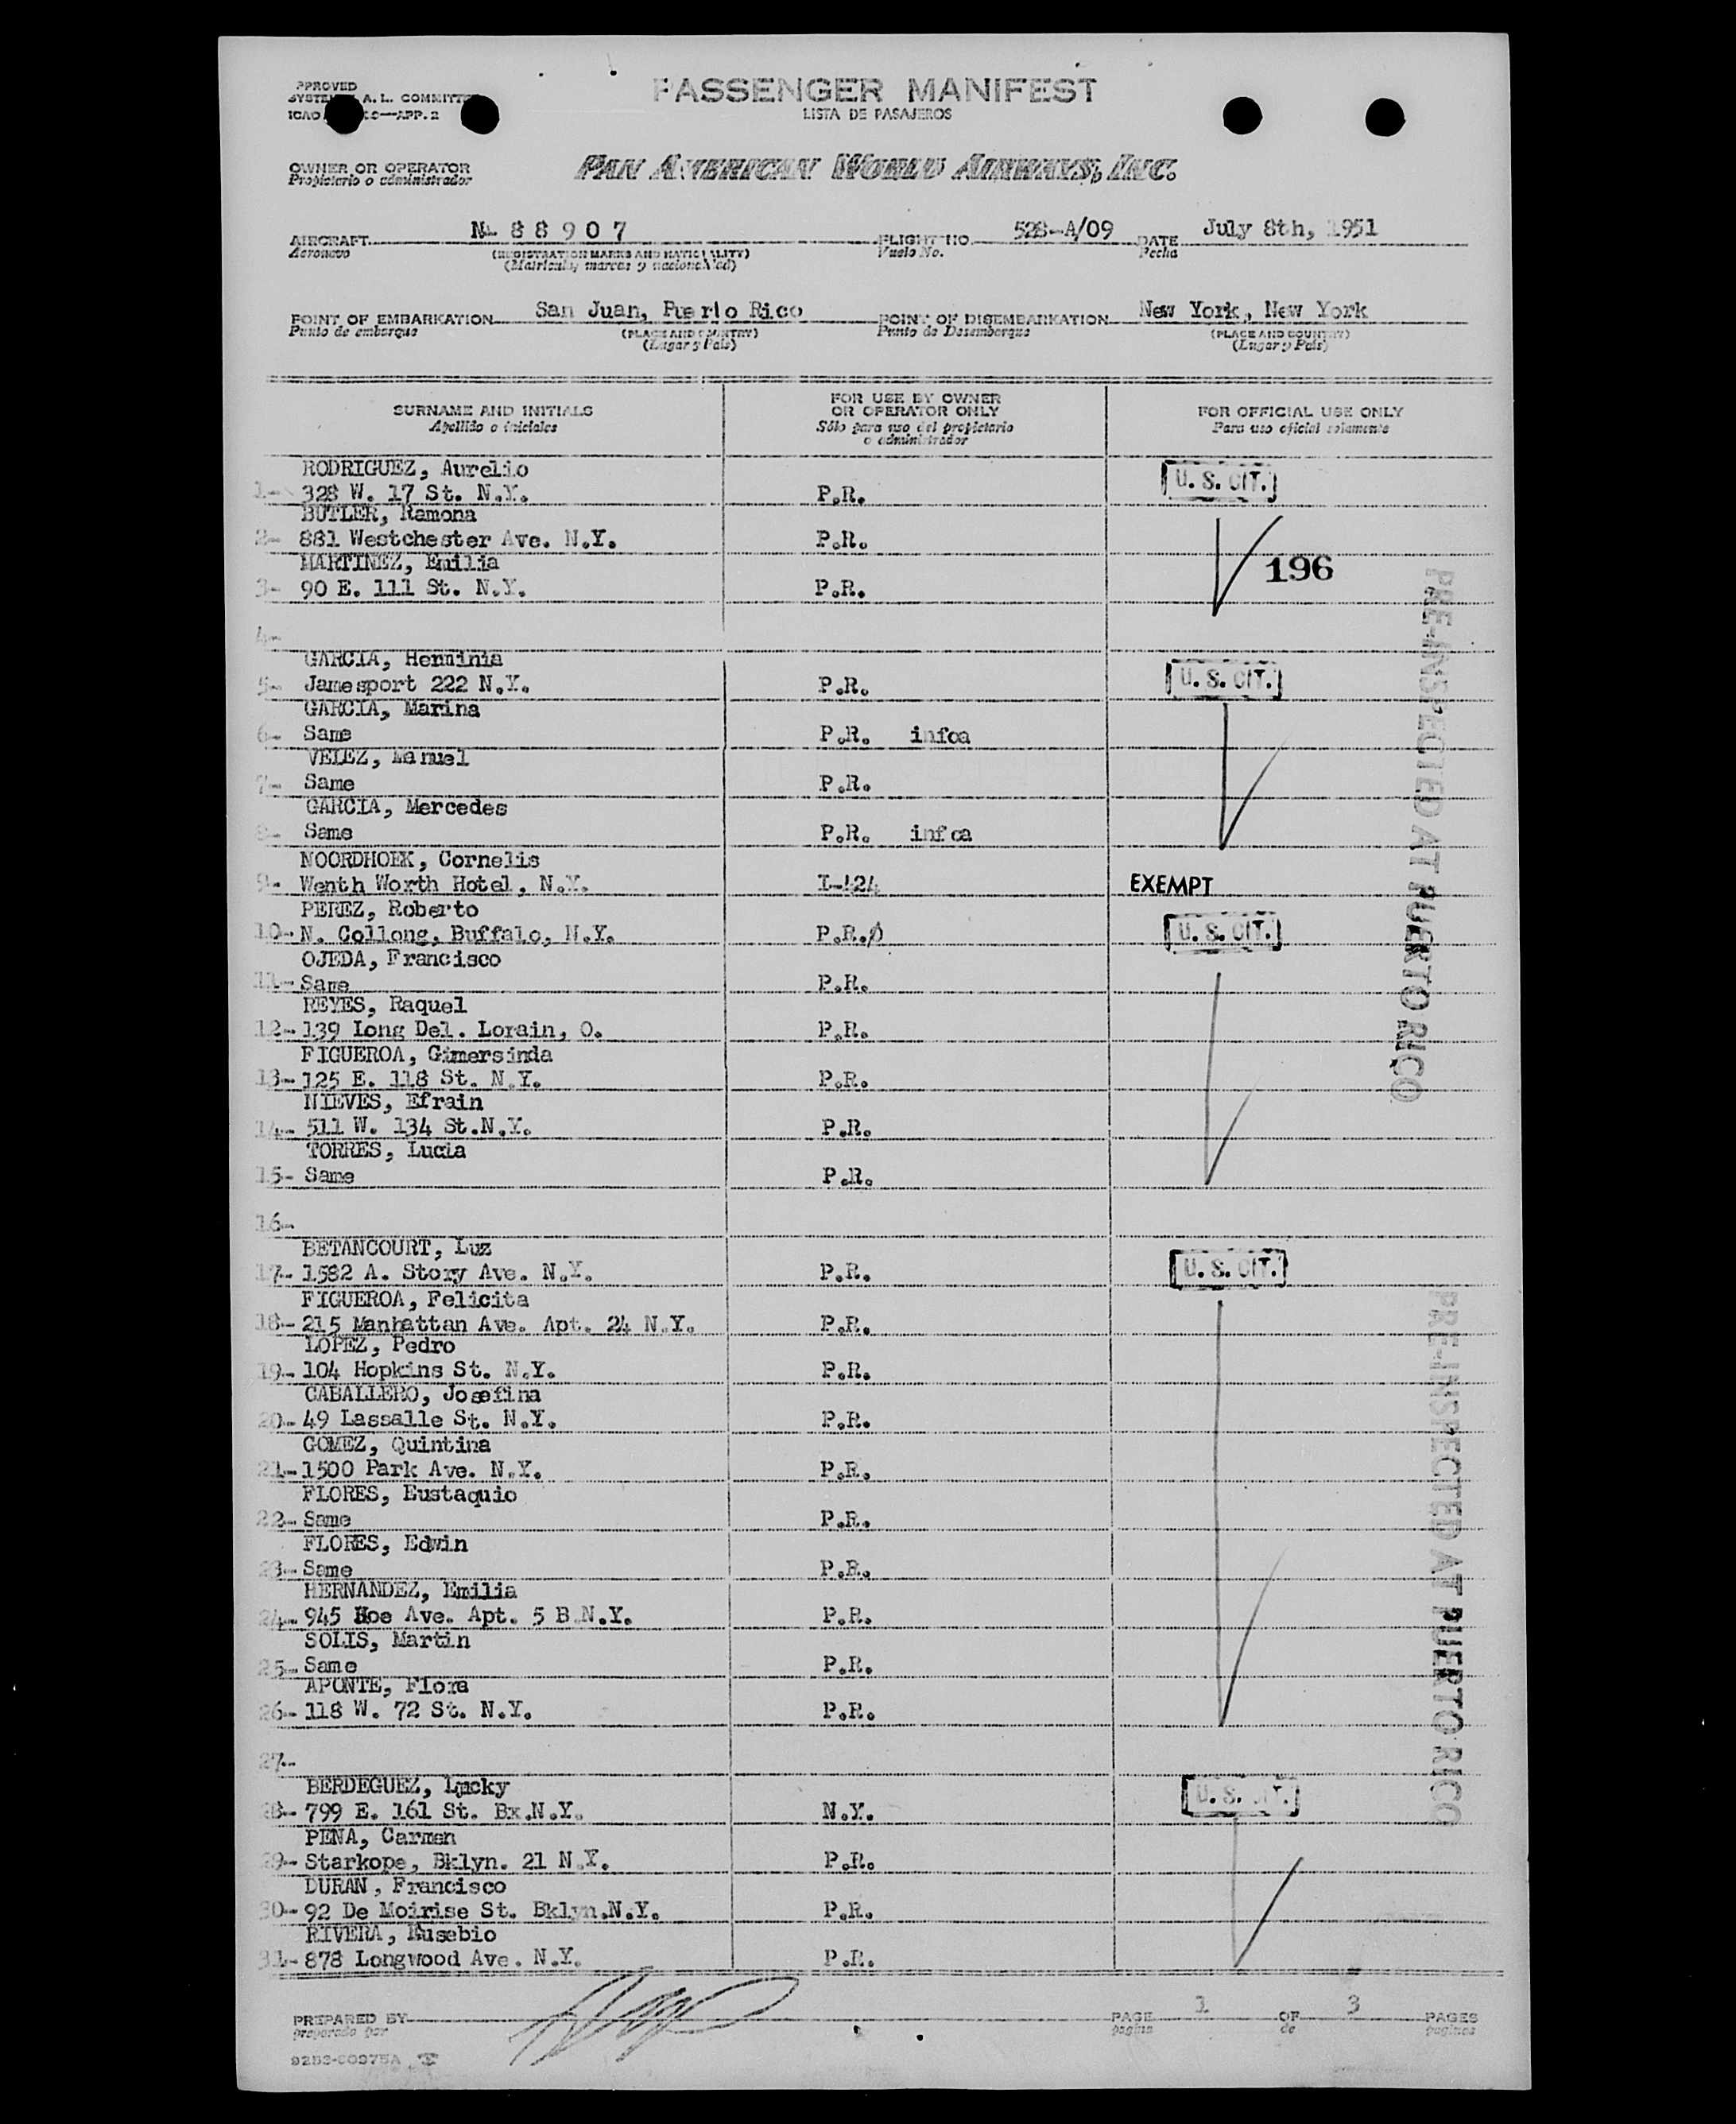 PASSENGER MANIFEST
LISTA DE PASAJEROS
PPROVED
A. L. COMMITT
ICAO —APP. 2
OWNER OR OPERATOR
Propietario o administrador
PAN AMERICAN WORLD AIRWAYS, INC.
AIRCRAFT N- 8 8 9 0 7 FLIGHT NO. 528-A/09 DATE July 8th, 1951
Aeronave (REGISTRATION MARKS AND NATIONALITY) Vuelo No. Fecha
(Matricula, marcas y nacionalidad)
POINT OF EMBARKATION San Juan, Puerto Rico POINT OF DISEMBARKATION New York, New York
Punto de embarque (PLACE AND COUNTRY) Punto de Desembarque (PLACE AND COUNTRY)
(Lugar y País) (Lugar y País)
SURNAME AND INITIALS FOR USE BY OWNER OR OPERATOR ONLY FOR OFFICIAL USE ONLY
Apellido o iniciales Sólo para uso del propietario o administrador Para uso oficial solamente
RODRIGUEZ, Aurelio
1- 328 W. 17 St. N.Y. P.R. U. S. CIT.
BUTLER, Ramona
2- 881 Westchester Ave. N.Y. P.R.
MARTINEZ, Emilia 196
3- 90 E. 111 St. N.Y. P.R.
4-
GARCIA, Herminia
5- Jamesport 222 N.Y. P.R. U. S. CIT.
GARCIA, Marina
6- Same P.R. infoa
VELEZ, Manuel
7- Same P.R.
GARCIA, Mercedes
8- Same P.R. infoa
NOORDHOEK, Cornelis
9- Wenth Worth Hotel, N.Y. I-424 EXEMPT
PEREZ, Roberto
10- N. Collong, Buffalo, N.Y. P.R. U. S. CIT.
OJEDA, Francisco
11- Same P.R.
REYES, Raquel
12- 139 Long Del. Lorain, O. P.R.
FIGUEROA, Gimersinda
13- 125 E. 118 St. N.Y. P.R.
NIEVES, Efrain
14- 511 W. 134 St.N.Y. P.R.
TORRES, Lucia
15- Same P.R.
16-
BETANCOURT, Luz
17- 1582 A. Story Ave. N.Y. P.R. U. S. CIT.
FIGUEROA, Felicita
18- 215 Manhattan Ave. Apt. 24 N.Y. P.R.
LOPEZ, Pedro
19- 104 Hopkins St. N.Y. P.R.
CABALLERO, Josefina
20- 49 Lassalle St. N.Y. P.R.
GOMEZ, Quintina
21- 1500 Park Ave. N.Y. P.R.
FLORES, Eustaquio
22- Same P.R.
FLORES, Edwin
23- Same P.R.
HERNANDEZ, Emilia
24- 945 Hoe Ave. Apt. 5 B.N.Y. P.R.
SOLIS, Martin
25- Same P.R.
APONTE, Flora
26- 118 W. 72 St. N.Y. P.R.
27-
BERDEGUEZ, Lucky
28- 799 E. 161 St. Bx.N.Y. N.Y. U. S. CIT.
PENA, Carmen
29- Starkope, Bklyn. 21 N.Y. P.R.
DURAN, Francisco
30- 92 De Moirise St. Bklyn.N.Y. P.R.
RIVERA, Eusebio
31- 878 Longwood Ave. N.Y. P.R.
PRE-INSPECTED AT PUERTO RICO
PRE-INSPECTED AT PUERTO RICO
PREPARED BY PAGE 1 OF 3 PAGES
preparado por página de páginas